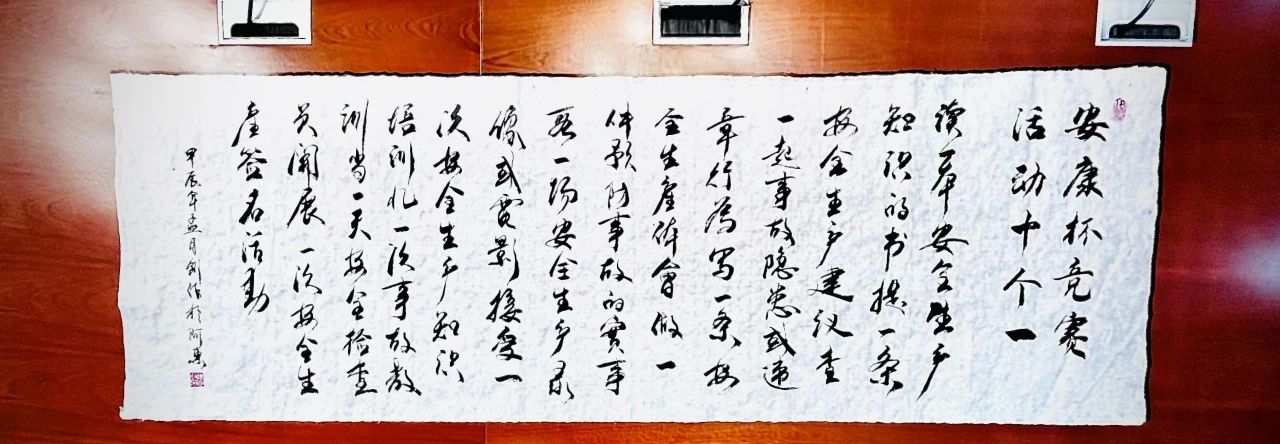 安康杯竞赛
活动十个一
读一本安全生产
知识的书提一条
安全生产建议查
一起事故隐患或违
章行为写一条安
全生產体會做一
件预防事故的實事
看一场安全生产录
像或電影接受一
次安全生产知识
培训忆一次事故教
训当一天安全检查
员開展一次安全生
產签名活動
甲辰年孟月创作於阿